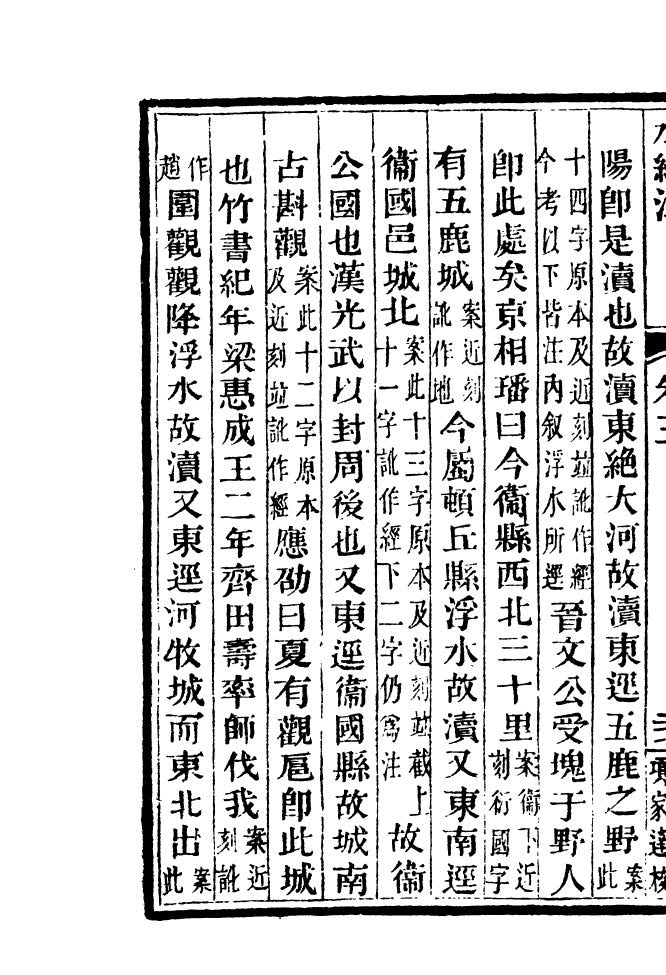 陽卽是瀆也故瀆東絶大河故瀆東逕五鹿之野案此
十四字原本及近刻並訛作經今考以下皆注內叙浮水所逕晉文公受塊于野人
卽此處矣京相璠曰今衞縣西北三十里案衞下近刻衍國字
有五鹿城案近刻訛作地今屬頓丘縣浮水故瀆又東南逕
衞國邑城北案此十三字原本及近刻並截上十一字訛作經下二字仍爲注故衞
公國也漢光武以封周後也又東逕衞國縣故城南
古斟觀案此十二字原本及近刻並訛作經應劭曰夏有觀扈卽此城
也竹書紀年梁惠成王二年齊田壽率師伐我案近刻訛
作趙圍觀觀降浮水故瀆又東逕河牧城而東北出案此